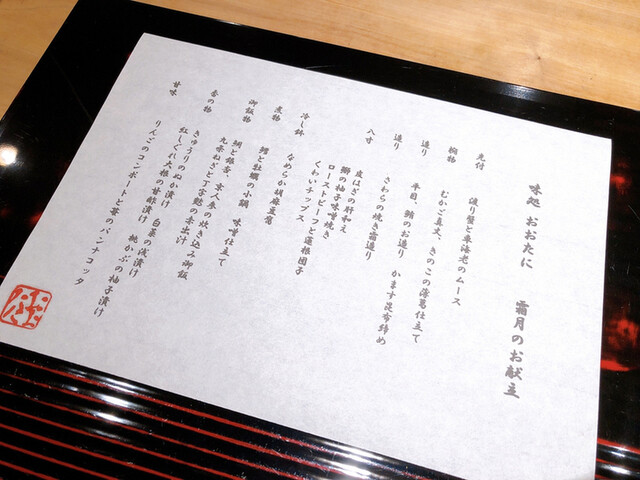 味処 おおたに　霜月のお献立
先付　渡り蟹と車海老のムース
椀物　むかご真丈、きのこの薄葛仕立て
造り　平目、鯖のお造り　かます昆布締め
造り　さわらの焼き霜造り
八寸　皮はぎの肝和え
鰤の柚子味噌焼き
ローストビーフと蓮根団子
くわいチップス
冷し鉢　なめらか胡麻豆腐
煮物　鱈と牡蠣の小鍋　味噌仕立て
御飯物　鯛と銀杏、京人参の炊き込み御飯
九条ねぎと丁字麩の赤出汁
香の物　きゅうりのぬか漬け　白菜の浅漬け
紅しぐれ大根の甘酢漬け　桃かぶの柚子漬け
甘味　りんごのコンポートと苺のパンナコッタ